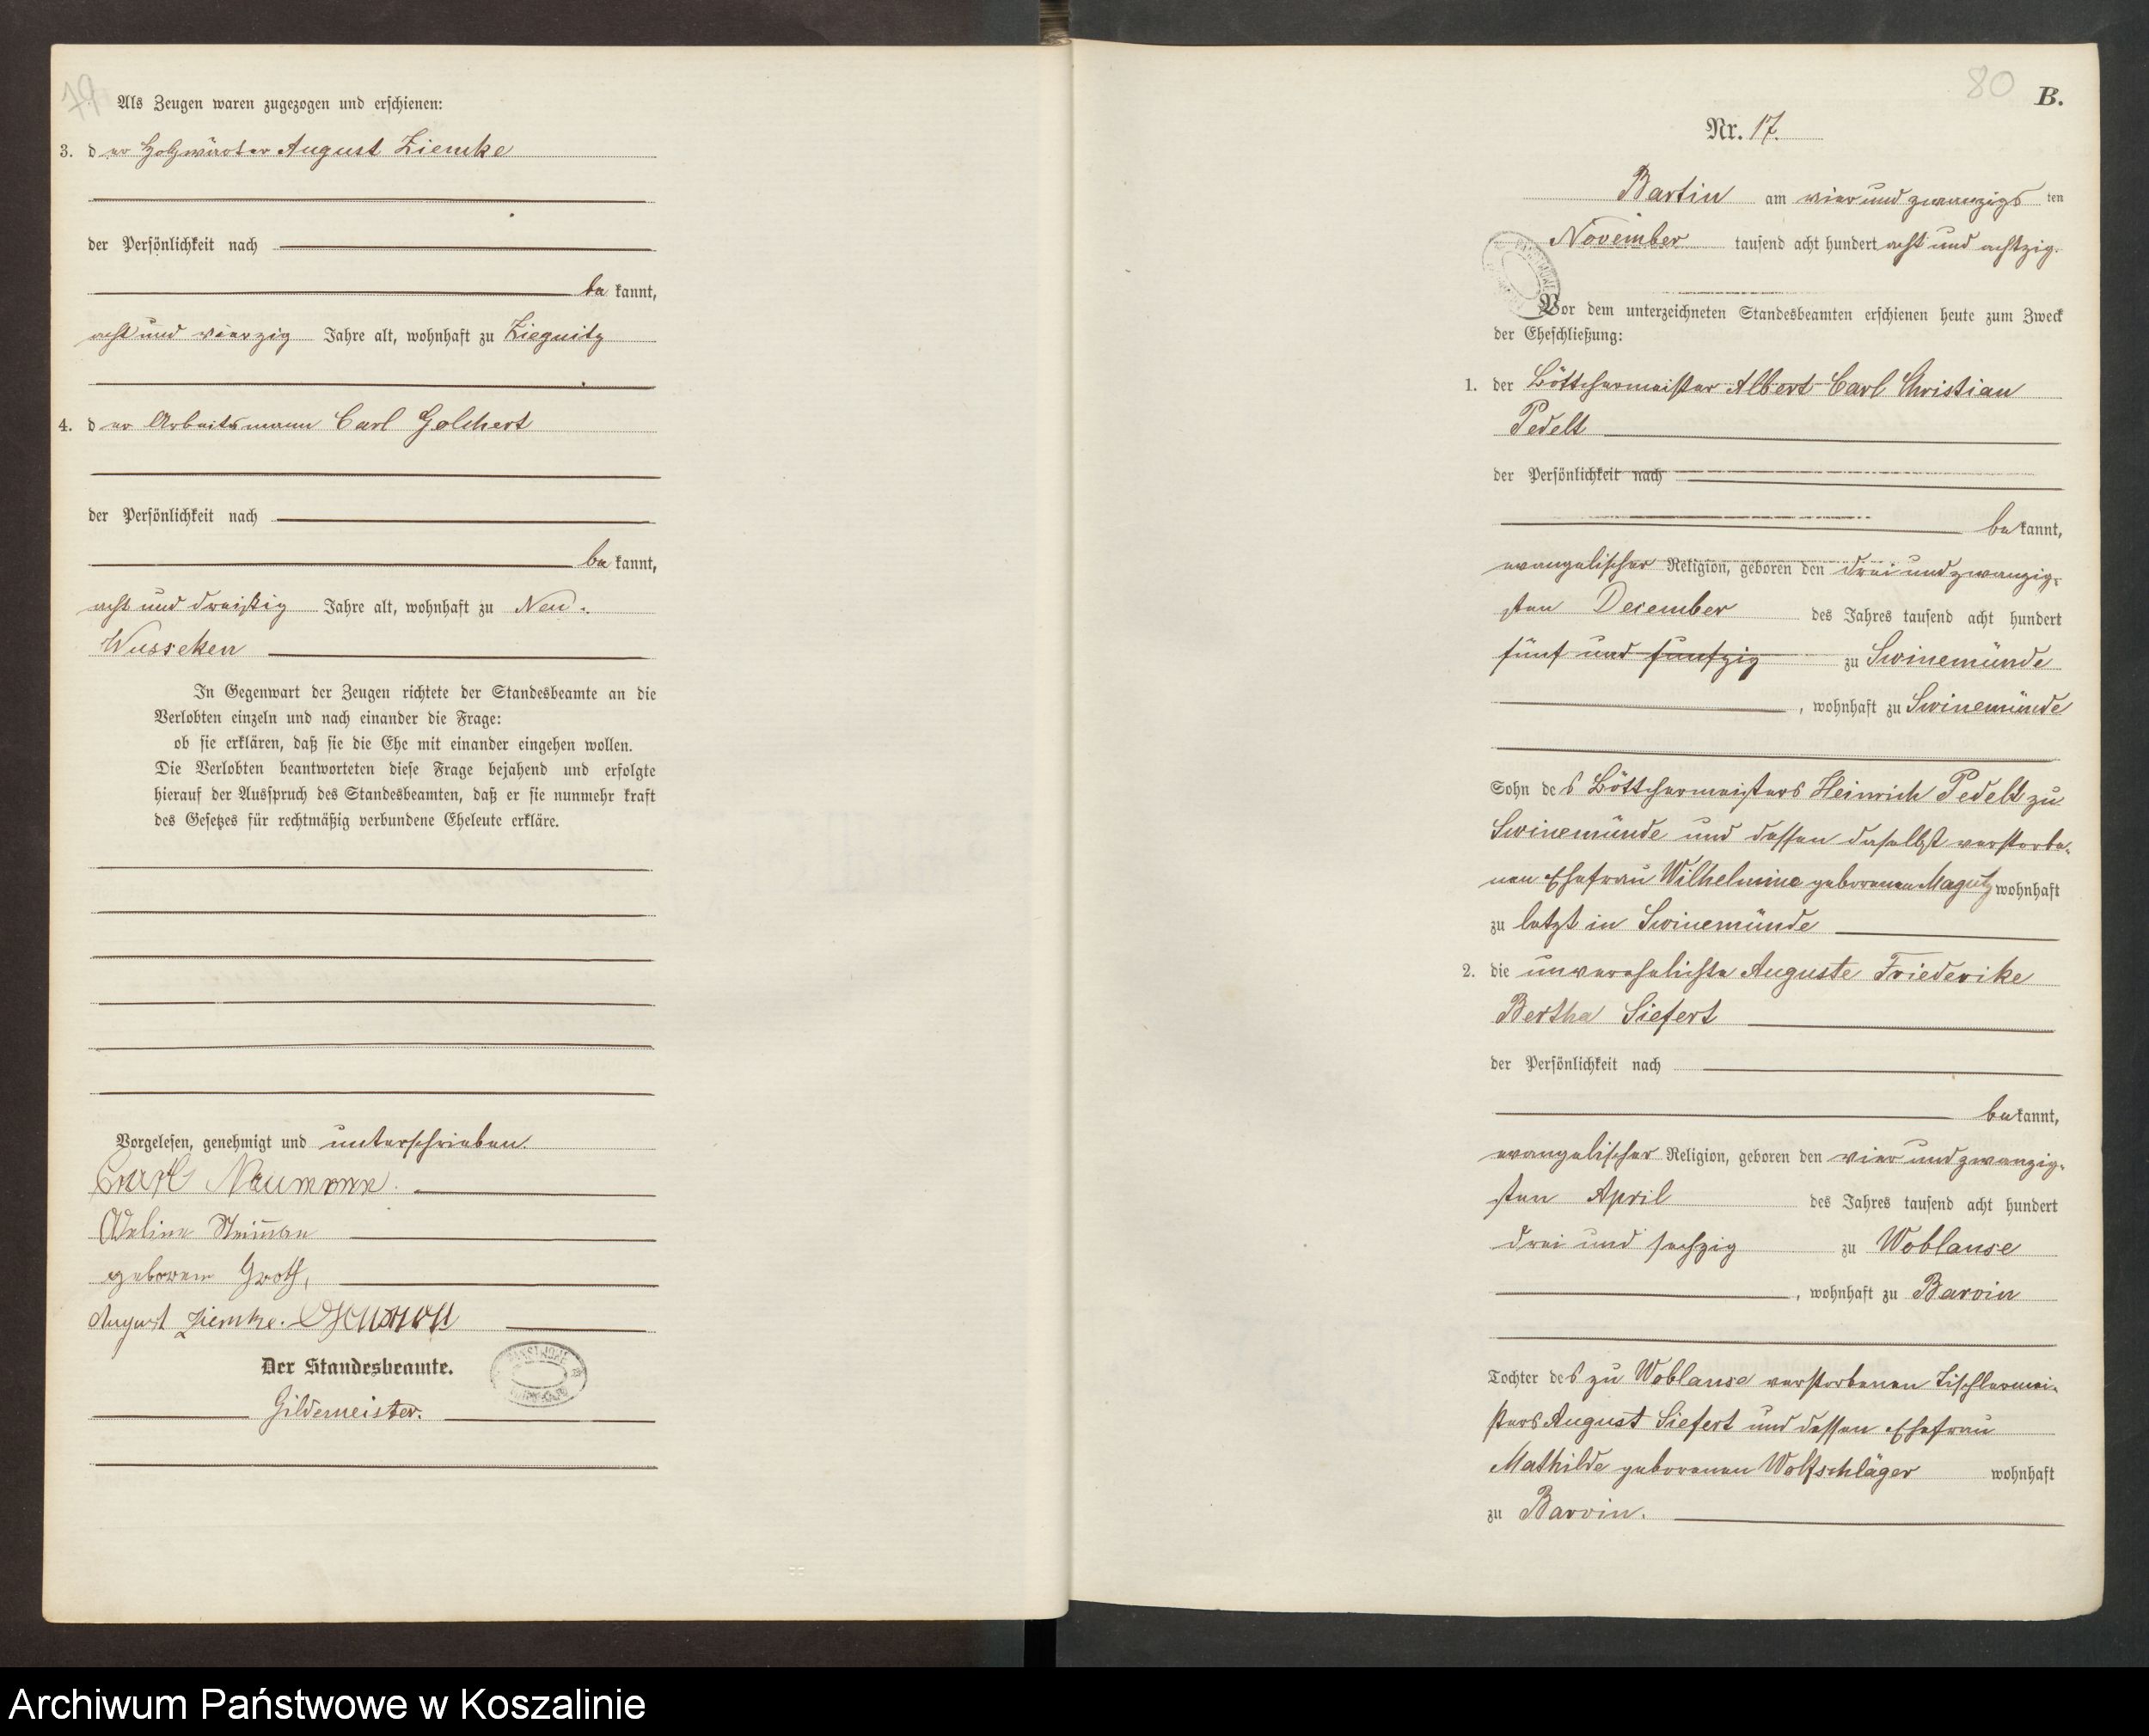 79
Als Zeugen waren zugezogen und erschienen:
3. der Holzwärter August Ziemke
der Persönlichkeit nach
bekannt,
acht und vierzig Jahre alt, wohnhaft zu Ziegnitz
4. der Arbeitsmann Carl Golchert
der Persönlichkeit nach
bekannt,
acht und dreißig Jahre alt, wohnhaft zu Neu-
Wusseken
In Gegenwart der Zeugen richtete der Standesbeamte an die
Verlobten einzeln und nach einander die Frage:
ob sie erklären, daß sie die Ehe mit einander eingehen wollen.
Die Verlobten beantworteten diese Frage bejahend und erfolgte
hierauf der Ausspruch des Standesbeamten, daß er sie nunmehr kraft
des Gesetzes für rechtmäßig verbundene Eheleute erkläre.
Vorgelesen, genehmigt und unterschrieben.
Carl Naumann.
geborene Groth,
August Ziemke.
Der Standesbeamte.
Gildemeister.
80
B.
Nr. 17.
Bartin am vier und zwanzigsten
November tausend acht hundert acht und achtzig.
Vor dem unterzeichneten Standesbeamten erschienen heute zum Zweck
der Eheschließung:
1. der Böttchermeister Albert Carl Christian
Pedelt
der Persönlichkeit nach
bekannt,
evangelischer Religion, geboren den drei und zwanzig-
sten December des Jahres tausend acht hundert
fünf und fünfzig zu Swinemünde
, wohnhaft zu Swinemünde
Sohn des Böttchermeisters Heinrich Pedelt zu
Swinemünde und dessen daselbst verstorbe-
nen Ehefrau Wilhelmine geborenen Magutz wohnhaft
zu letzt in Swinemünde
2. die unverehelichte Auguste Friederike
Bertha Siefert
der Persönlichkeit nach
bekannt,
evangelischer Religion, geboren den vier und zwanzig-
sten April des Jahres tausend acht hundert
drei und sechzig zu Woblanse
, wohnhaft zu Barvin
Tochter des zu Woblanse verstorbenen Tischlermei-
sters August Siefert und dessen Ehefrau
Mathilde geborenen Wolfschläger wohnhaft
zu Barvin.
Archiwum Państwowe w Koszalinie